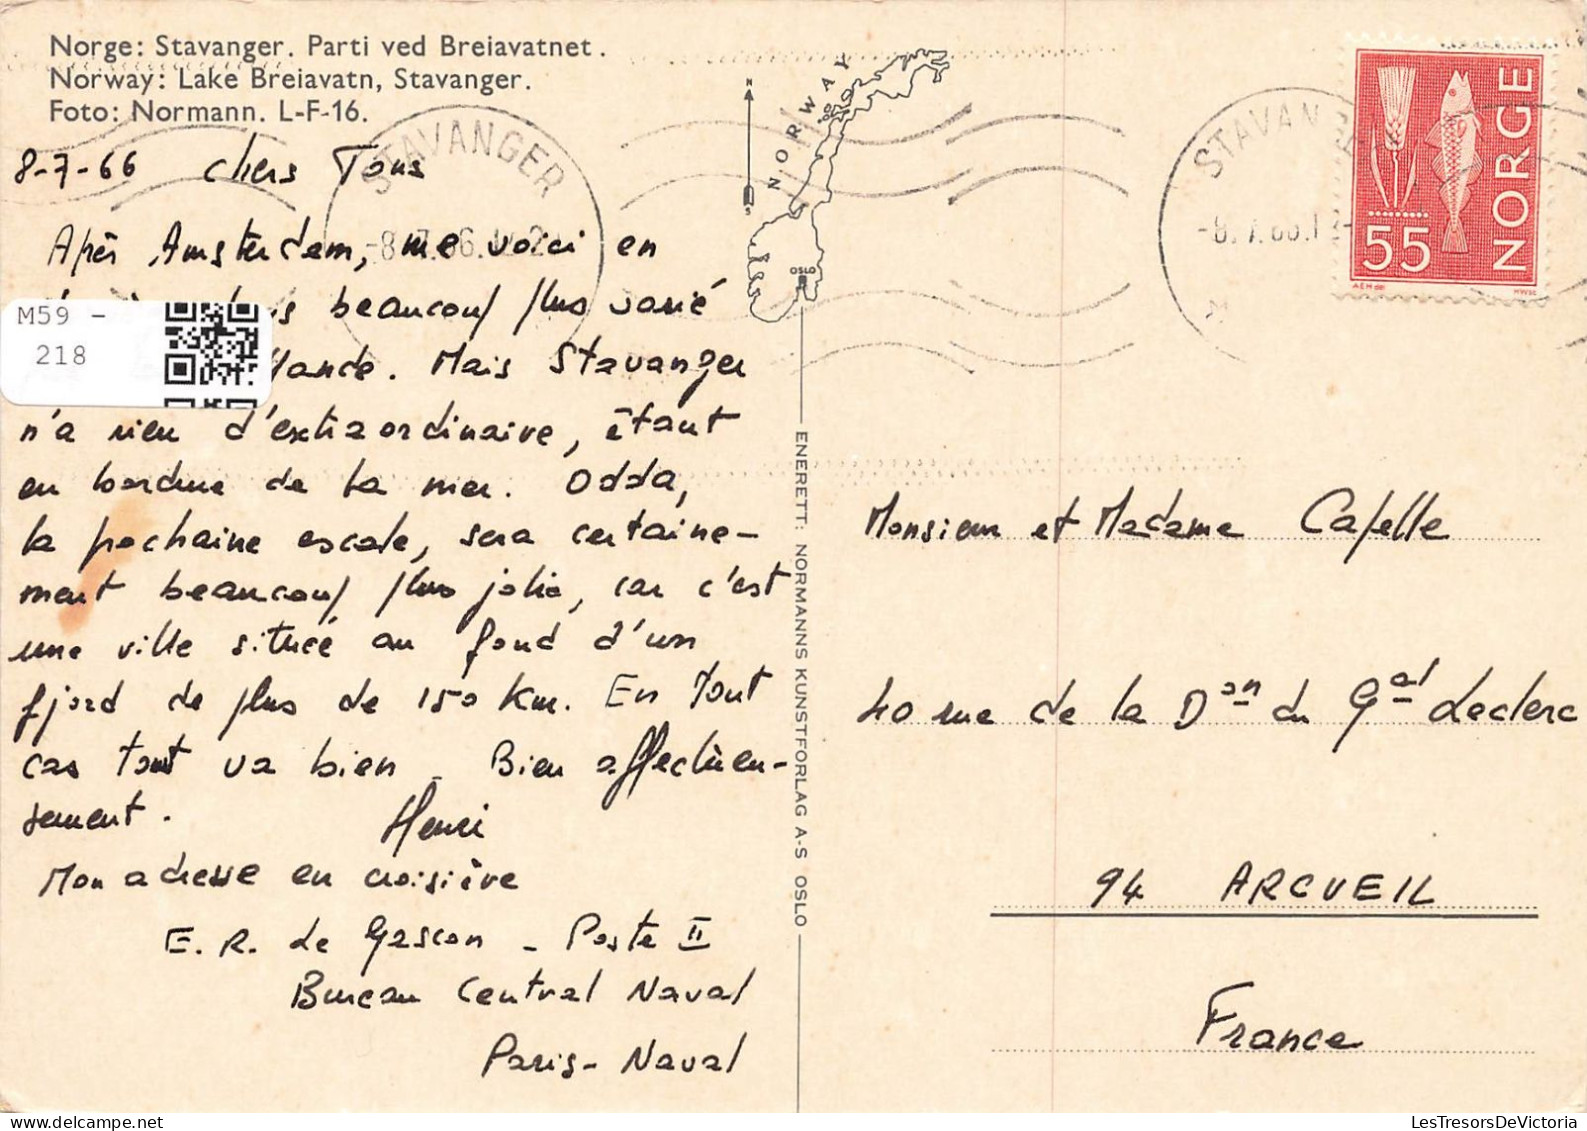 Norge: Stavanger. Parti ved Breiavatnet.
Norway: Lake Breiavatn, Stavanger.
Foto: Normann. L-F-16.
8-7-66 Chers Tous
Après Amsterdam, me voici en
beaucoup plus varié
Mais Stavanger
n'a rien d'extraordinaire, étant
en bordure de la mer. Odda,
la prochaine escale, sera certaine-
ment beaucoup plus jolie, car c'est
une ville située au fond d'un
fjord de plus de 150 km. En tout
cas tout va bien - Bien affectueu-
sement.
Henri
Mon adresse en croisière
E.R. de Gascon - Poste II
Bureau Central Naval
Paris-Naval
M59 -
218
STAVANGER
-8.7.66.
NORWAY
N
S
OSLO
ENERETT: NORMANNS KUNSTFORLAG A-S OSLO
STAVAN
-8.7.66.1
NORGE
55
Monsieur et Madame Capelle
40 rue de la Don du Gal Leclerc
94 ARCUEIL
France
LesTresorsDeVictoria